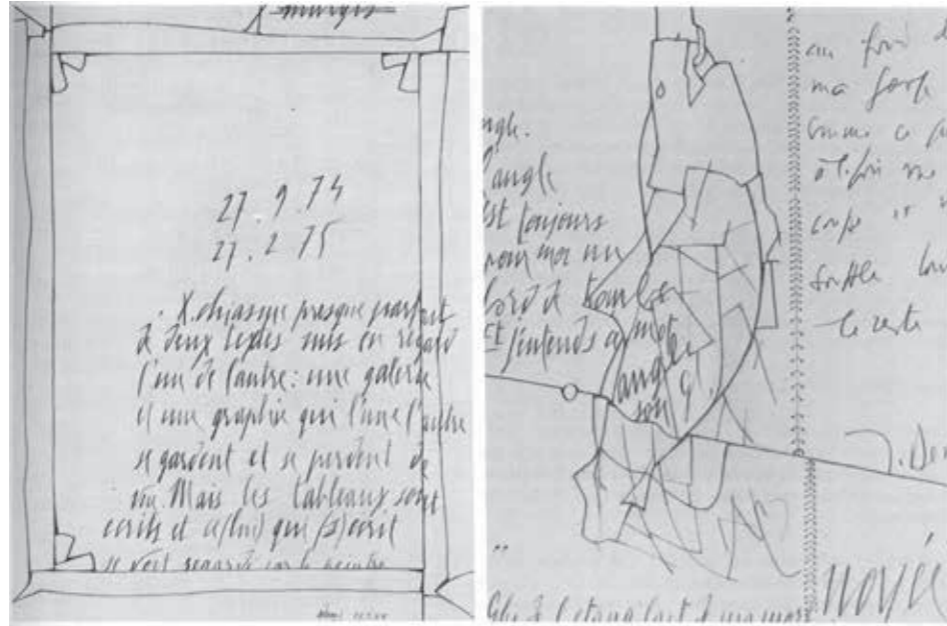 margis
27 . 9 . 74
27 . 2 75
. X. chiasme presque parfait
de deux textes mis en regard
l'un de l'autre : une galerie
et une graphie qui l'une l'autre
se gardent et se perdent de
vue. Mais les tableaux sont
écrits et ce(lui) qui (s')écrit
se voit regardé par le peintre
ngle.
l'angle
est toujours
pour moi un
bord de tombe
Et j'entends ce mot
angle
son g
au fond de
ma gorge
comme ce
à la fois me
coupe et
souffle
le reste
J. Der
noyé